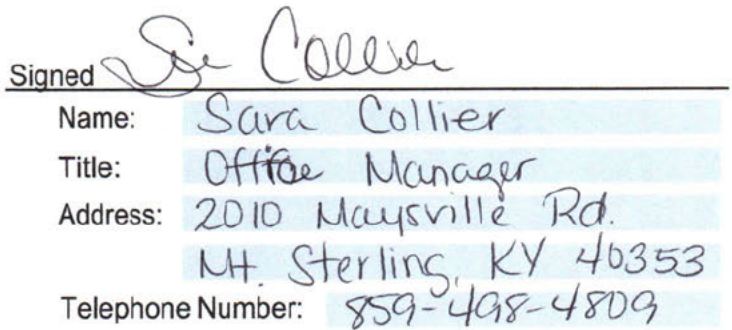 Signed Sara Collier
Name: Sara Collier
Title: Office Manager
Address: 2010 Maysville Rd.
Mt. Sterling, KY 40353
Telephone Number: 859-498-4809